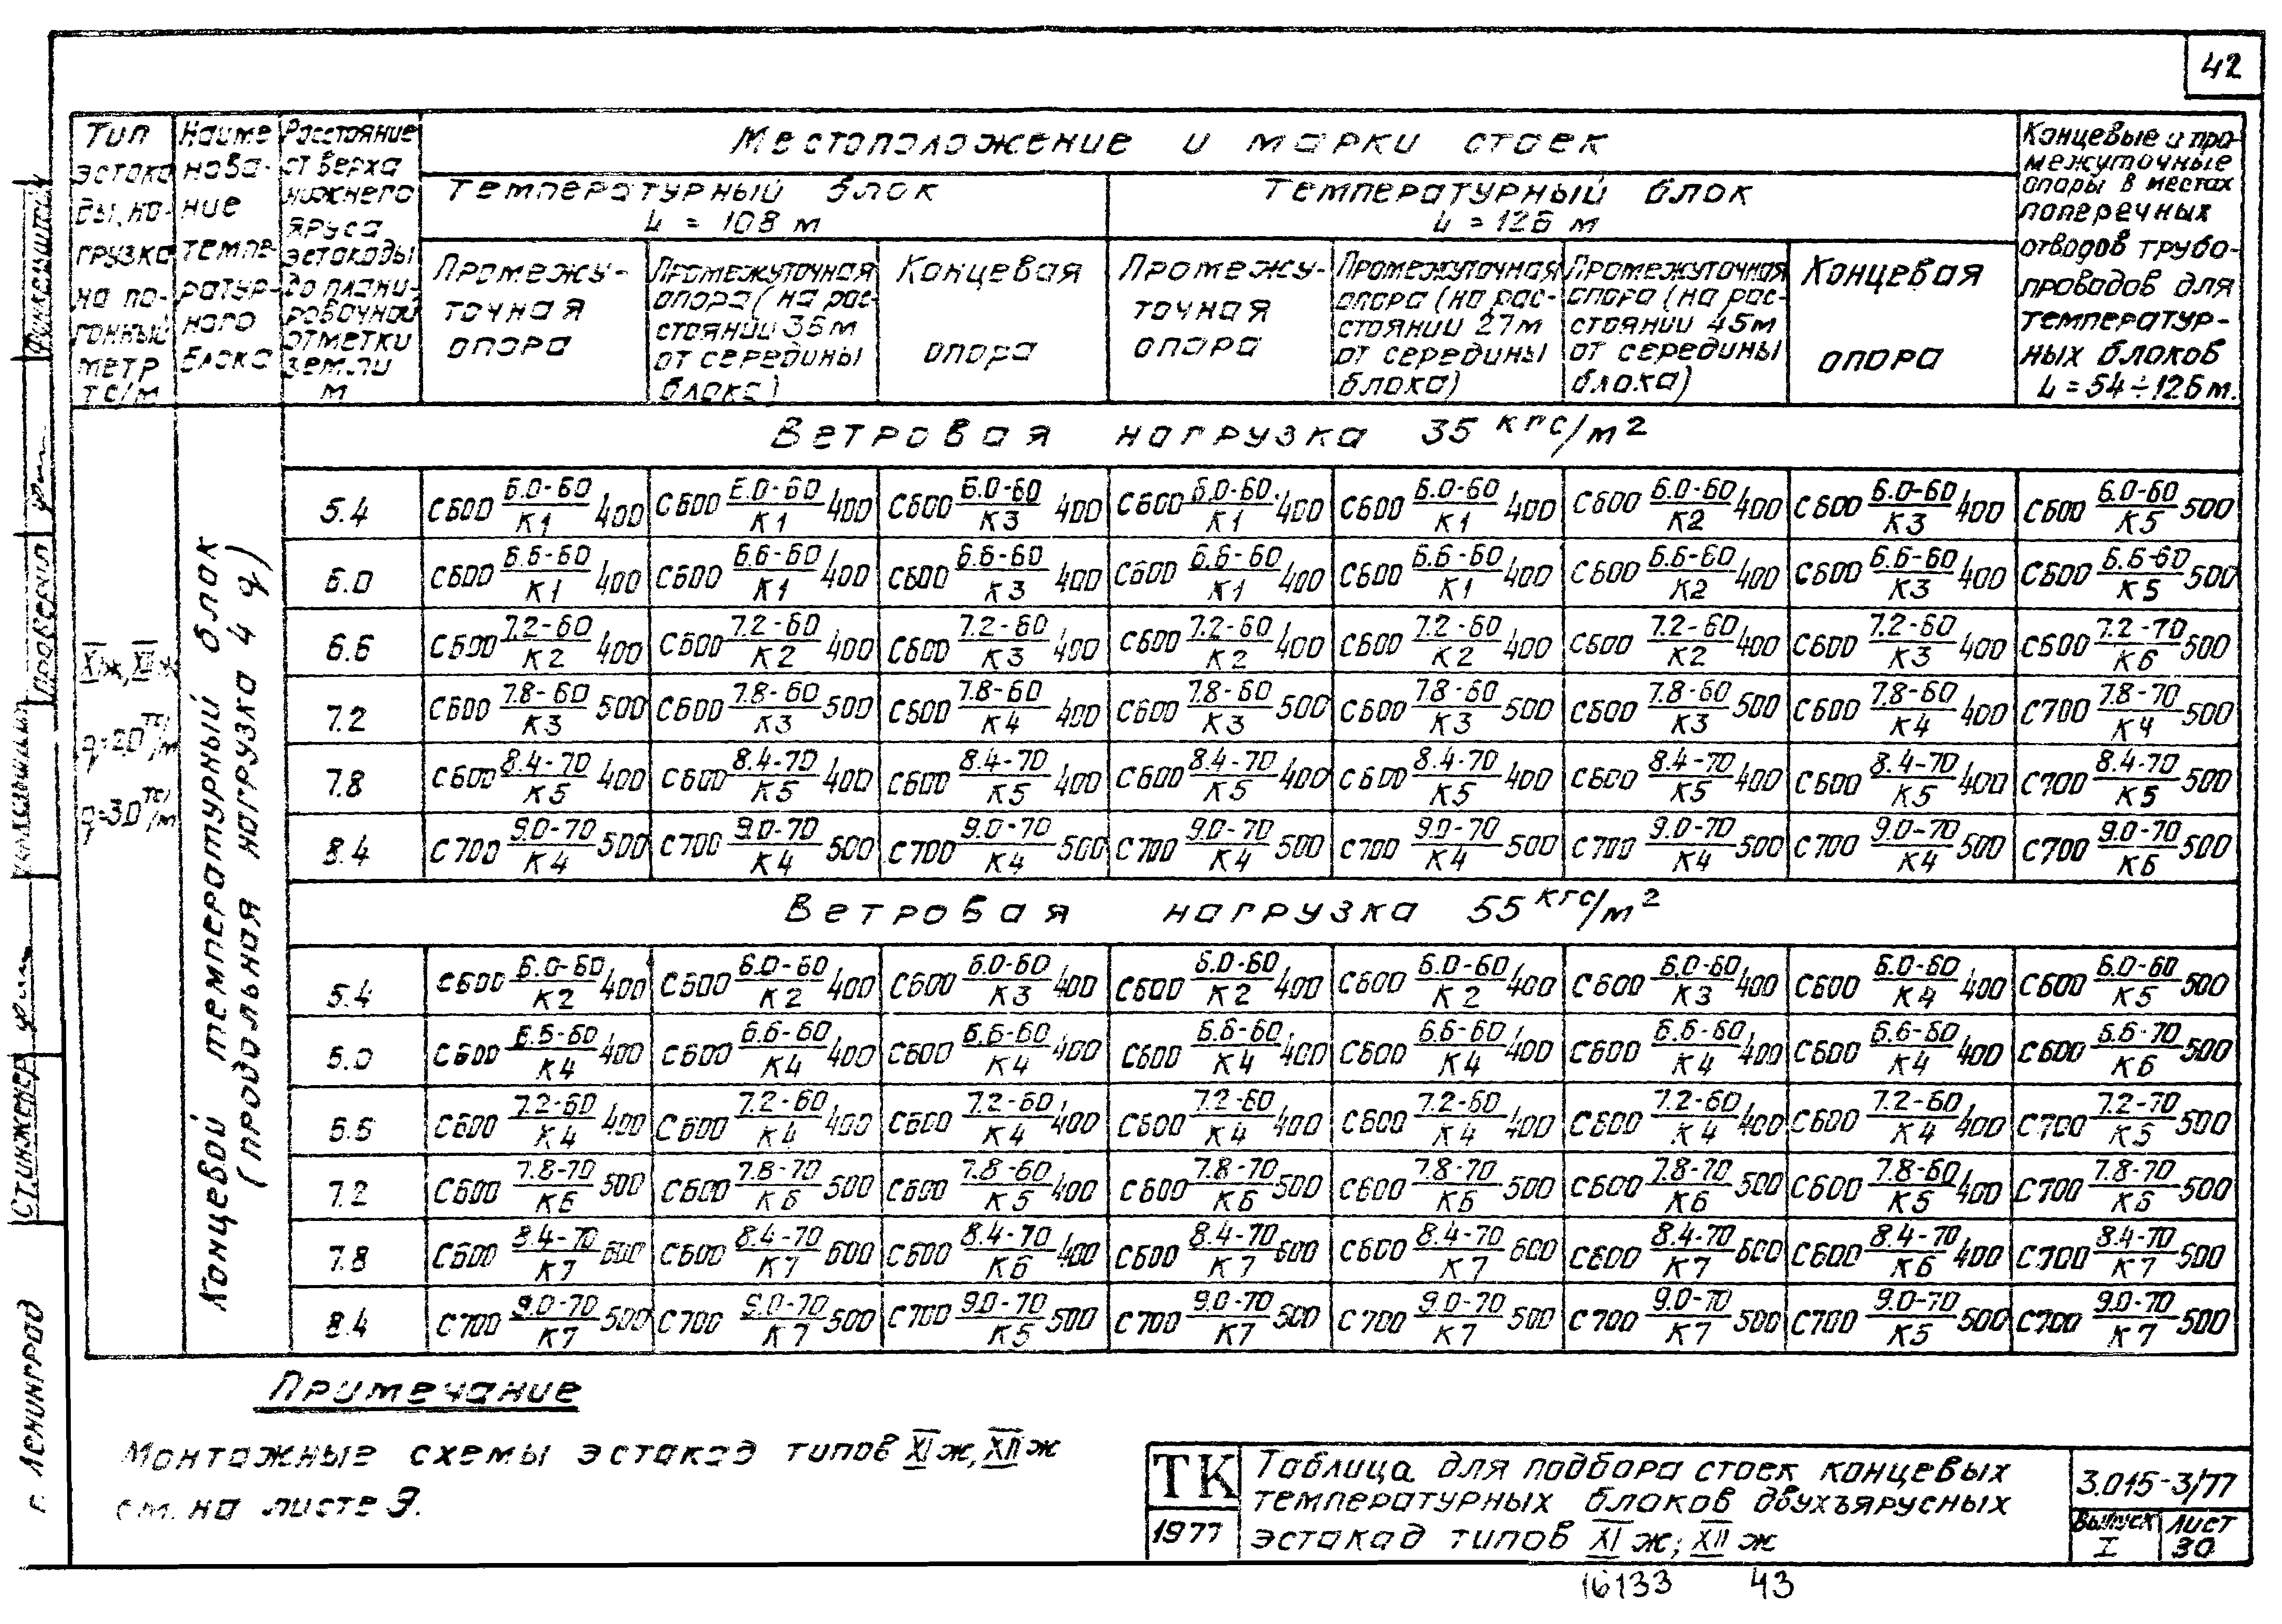 42
Тип эстакады, нагрузка на погонный метр тс/м
Наименование температурного блока
Расстояние от верха нижнего яруса эстакады до планировочной отметки земли м
Местоположение и марки стоек
Температурный блок L = 108 м
Температурный блок L = 126 м
Промежуточная опора
Промежуточная опора (на расстоянии 36м от середины блока)
Концевая опора
Промежуточная опора
Промежуточная опора (на расстоянии 27м от середины блока)
Промежуточная опора (на расстоянии 45м от середины блока)
Концевая опора
Концевые и промежуточные опоры в местах поперечных отводов трубопроводов для температурных блоков L = 54÷126 м.
XIж, XIIж
q=2.0 тс/м
q=3.0 тс/м
Концевой температурный блок (продольная нагрузка 4 q)
Ветровая нагрузка 35 кгс/м²
5.4 С600 6.0-60/К1 400 С600 6.0-60/К1 400 С600 6.0-60/К3 400 С600 6.0-60/К1 400 С600 6.0-60/К1 400 С600 6.0-60/К2 400 С600 6.0-60/К3 400 С600 6.0-60/К5 500
6.0 С600 6.6-60/К1 400 С600 6.6-60/К1 400 С600 6.6-60/К3 400 С600 6.6-60/К1 400 С600 6.6-60/К1 400 С600 6.6-60/К2 400 С600 6.6-60/К3 400 С600 6.6-60/К5 500
6.6 С600 7.2-60/К2 400 С600 7.2-60/К2 400 С600 7.2-60/К3 400 С600 7.2-60/К2 400 С600 7.2-60/К2 400 С600 7.2-60/К2 400 С600 7.2-60/К3 400 С600 7.2-70/К6 500
7.2 С600 7.8-60/К3 500 С600 7.8-60/К3 500 С600 7.8-60/К4 400 С600 7.8-60/К3 500 С600 7.8-60/К3 500 С600 7.8-60/К3 500 С600 7.8-60/К4 400 С700 7.8-70/К4 500
7.8 С600 8.4-70/К5 400 С600 8.4-70/К5 400 С600 8.4-70/К5 400 С600 8.4-70/К5 400 С600 8.4-70/К5 400 С600 8.4-70/К5 400 С600 8.4-70/К5 400 С700 8.4-70/К5 500
8.4 С700 9.0-70/К4 500 С700 9.0-70/К4 500 С700 9.0-70/К4 500 С700 9.0-70/К4 500 С700 9.0-70/К4 500 С700 9.0-70/К4 500 С700 9.0-70/К4 500 С700 9.0-70/К6 500
Ветровая нагрузка 55 кгс/м²
5.4 С600 6.0-60/К2 400 С600 6.0-60/К2 400 С600 6.0-60/К3 400 С600 6.0-60/К2 400 С600 6.0-60/К2 400 С600 6.0-60/К3 400 С600 6.0-60/К4 400 С600 6.0-60/К5 500
6.0 С600 6.6-60/К4 400 С600 6.6-60/К4 400 С600 6.6-60/К4 400 С600 6.6-60/К4 400 С600 6.6-60/К4 400 С600 6.6-60/К4 400 С600 6.6-60/К4 400 С600 6.6-70/К6 500
6.6 С600 7.2-60/К4 400 С600 7.2-60/К4 400 С600 7.2-60/К4 400 С600 7.2-60/К4 400 С600 7.2-60/К4 400 С600 7.2-60/К4 400 С600 7.2-60/К4 400 С700 7.2-70/К5 500
7.2 С600 7.8-70/К6 500 С600 7.8-70/К6 500 С600 7.8-60/К5 400 С600 7.8-70/К6 500 С600 7.8-70/К6 500 С600 7.8-70/К6 500 С600 7.8-60/К5 400 С700 7.8-70/К6 500
7.8 С600 8.4-70/К7 600 С600 8.4-70/К7 600 С600 8.4-70/К6 400 С600 8.4-70/К7 600 С600 8.4-70/К7 600 С600 8.4-70/К7 600 С600 8.4-70/К6 400 С700 8.4-70/К7 500
8.4 С700 9.0-70/К7 500 С700 9.0-70/К7 500 С700 9.0-70/К5 500 С700 9.0-70/К7 500 С700 9.0-70/К7 500 С700 9.0-70/К7 500 С700 9.0-70/К5 500 С700 9.0-70/К7 500
Примечание
Монтажные схемы эстакад типов XIж, XIIж
см. на листе 9.
ТК
1977
Таблица для подбора стоек концевых
температурных блоков двухъярусных
эстакад типов XIж; XIIж
3.015-3/77
Выпуск I
Лист 30
16133 43
проверил
Ст.инженер
г. Ленинград